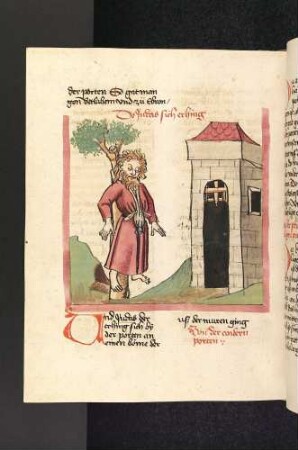 der porten So gat man
gen bethlahem vnd zu Ebron
Do Judas sich erhing
Und Judas der
erhing sich by
der porten an
einen bome der
uff der muren ging
Von der andern
porten